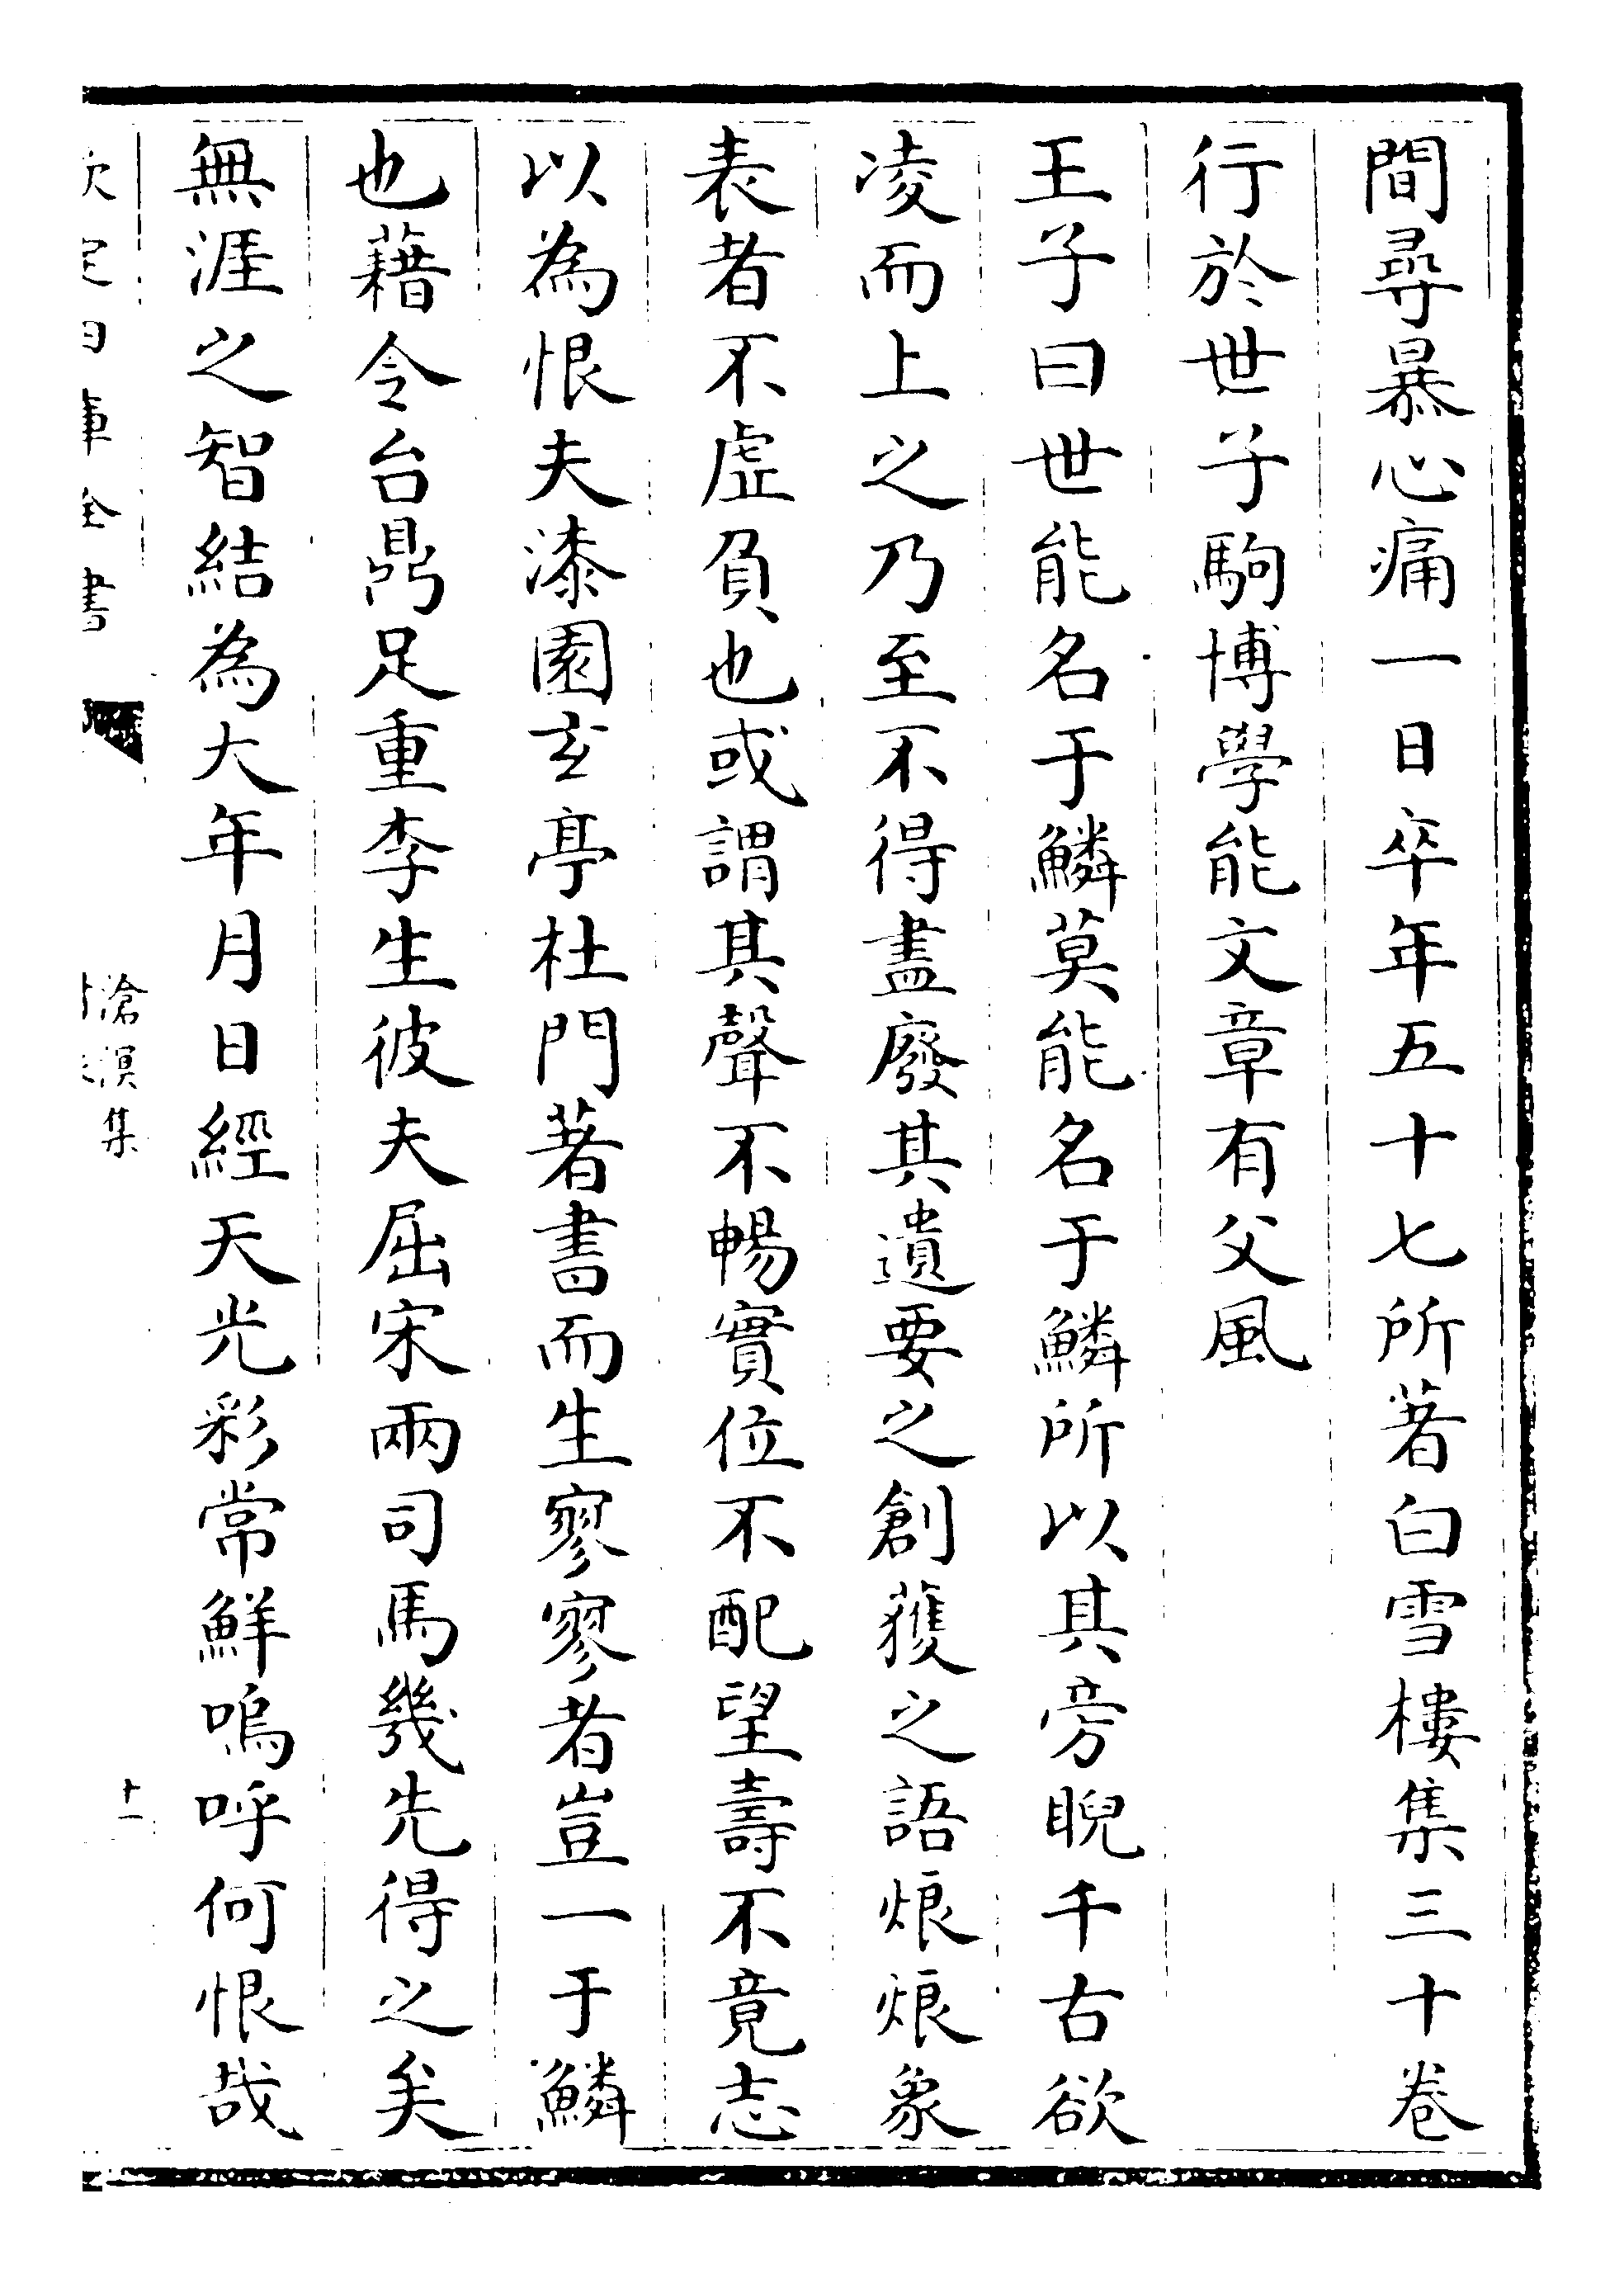 間尋暴心痛一日卒年五十七所著白雪樓集三十卷
行於世子駒博學能文章有父風
王子曰世能名于鱗莫能名于鱗所以其旁睨千古欲
凌而上之乃至不得盡廢其遺要之創獲之語烺烺象
表者不虛負也或謂其聲不暢實位不配望壽不竟志
以為恨夫漆園玄亭杜門著書而生寥寥者豈一于鱗
也藉令台鼎足重李生彼夫屈宋兩司馬幾先得之矣
無涯之智結為大年月日經天光彩常鮮嗚呼何恨哉
欽定四庫全書
滄溟集
十一